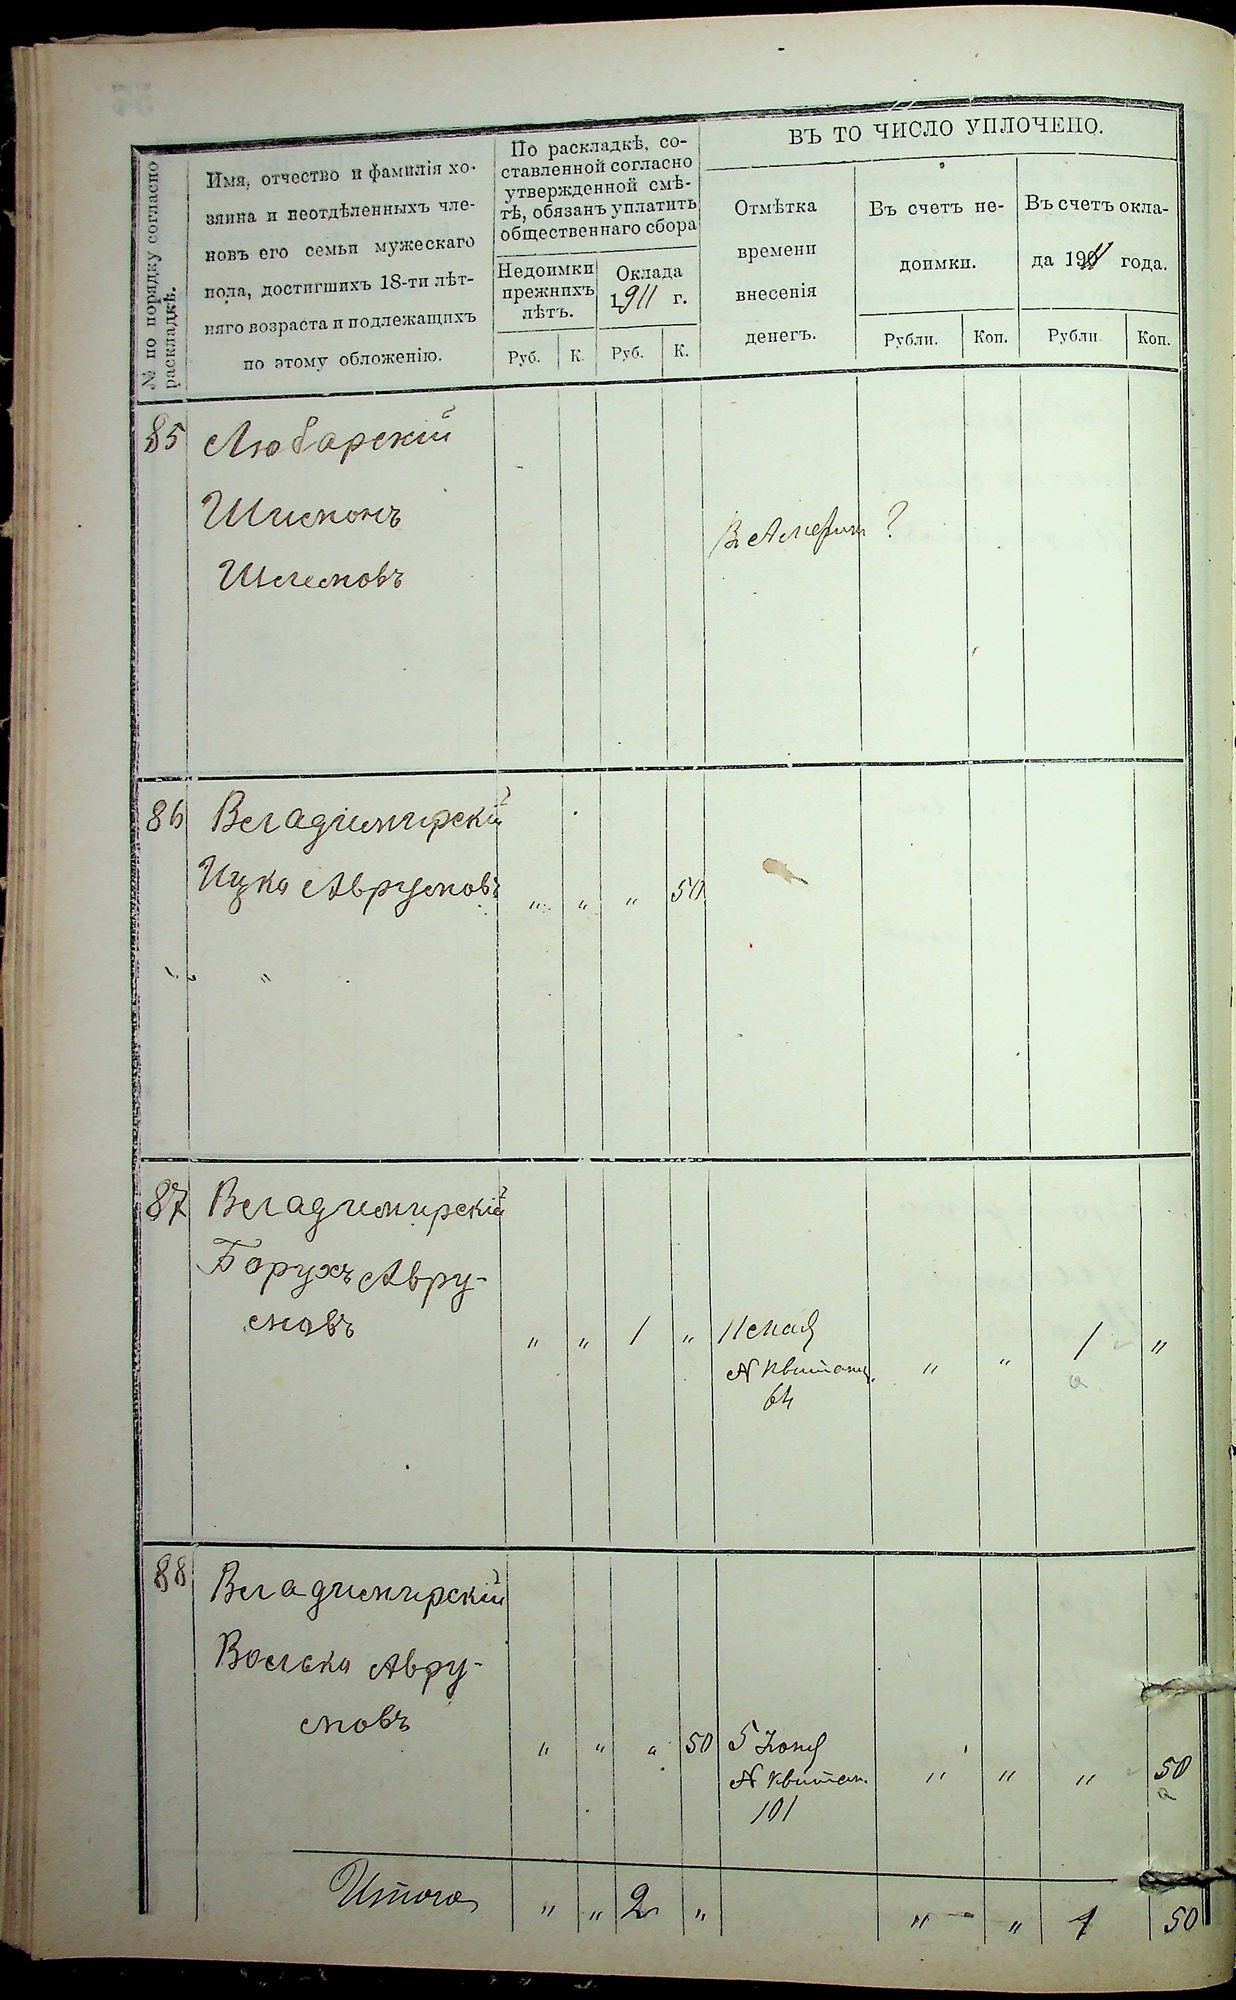 № по порядку согласно
раскладкѣ.
Имя, отчество и фамилія хо-
зяина и неотдѣленныхъ чле-
новъ его семьи мужескаго
пола, достигшихъ 18-ти лѣт-
няго возраста и подлежащихъ
по этому обложенію.
По раскладкѣ, со-
ставленной согласно
утвержденной смѣ-
тѣ, обязанъ уплатить
общественнаго сбора
Недоимки
прежнихъ
лѣтъ.
Оклада
1911 г.
Руб. К. Руб. К.
ВЪ ТО ЧИСЛО УПЛОЧЕНО.
Отмѣтка
времени
внесенія
денегъ.
Въ счетъ не-
доимки.
Въ счетъ окла-
да 1911 года.
Рубли. Коп. Рубли. Коп.
85 Любарскій
Шимонъ
Шлемовъ
Въ Америк ?
86 Владимирскій
Ицко Аврумовъ " " " 50
"
87 Владимирскій
Борухъ Авру-
мовъ " " 1 " 11 мая " " 1 "
№ квитанц.
64
88 Владимирскій
Волько Авру-
мовъ
" " " 50 5 " " " 50
№ квитан.
101
Итого " " 2 " " " 1 50